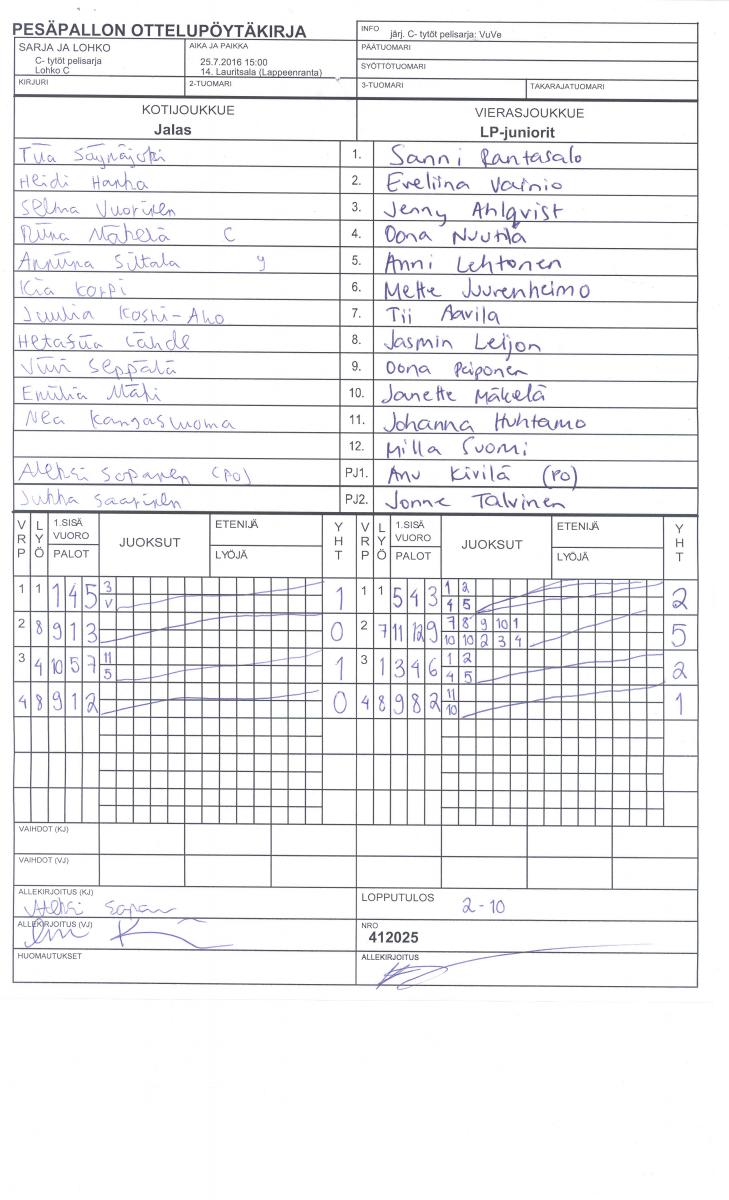 PESÄPALLON OTTELUPÖYTÄKIRJA
INFO järj. C- tytöt pelisarja: VuVe
SARJA JA LOHKO
C- tytöt pelisarja
Lohko C
AIKA JA PAIKKA
25.7.2016 15:00
14. Lauritsala (Lappeenranta)
PÄÄTUOMARI
SYÖTTÖTUOMARI
KIRJURI 2-TUOMARI 3-TUOMARI TAKARAJATUOMARI
KOTIJOUKKUE VIERASJOUKKUE
Jalas LP-juniorit
Tiia Säynäjoki 1. Sanni Rantasalo
Heidi Hanka 2. Eveliina Vainio
Selma Vuorinen 3. Jenny Ahlqvist
Riina Mäkelä C 4. Oona Nuutila
Anniina Siltala y 5. Anni Lehtonen
Kia Korpi 6. Mette Juurenheimo
Juulia Koski-Aho 7. Tii Aavila
Hetasiia Lähde 8. Jasmin Leijon
Viivi Seppälä 9. Oona Peiponen
Emilia Mäki 10. Janette Mäkelä
Nea Kangasluoma 11. Johanna Huhtamo
12. Milla Suomi
Aleksi Sopanen (PO) PJ1. Anu Kivilä (PO)
Jukka Saarinen PJ2. Jonne Talvinen
VRP LYÖ 1.SISÄ VUORO PALOT JUOKSUT ETENIJÄ LYÖJÄ YHT VRP LYÖ 1.SISÄ VUORO PALOT JUOKSUT ETENIJÄ LYÖJÄ YHT
1 1 1 4 5 3 1 1 1 5 4 3 1 2 2
V 4 5
2 8 9 1 3 0 2 7 11 12 9 7 8 9 10 1 5
10 10 2 3 4
3 4 10 5 7 11 1 3 1 3 4 6 1 2 2
5 4 5
4 8 9 1 2 0 4 8 9 8 2 11 1
10
VAIHDOT (KJ)
VAIHDOT (VJ)
ALLEKIRJOITUS (KJ) LOPPUTULOS 2-10
Aleksi Sopanen
ALLEKIRJOITUS (VJ) NRO
412025
HUOMAUTUKSET ALLEKIRJOITUS